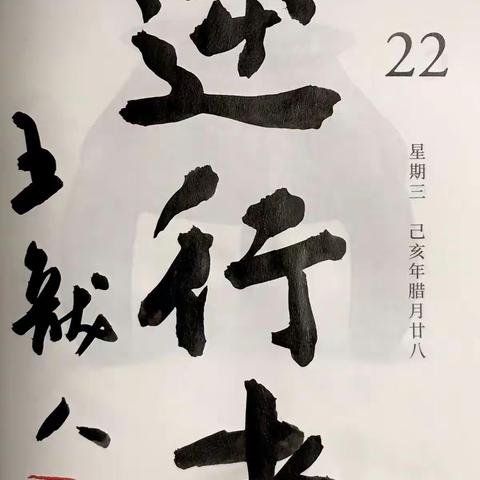 22
星期三 己亥年腊月廿八
逆行者
王献人